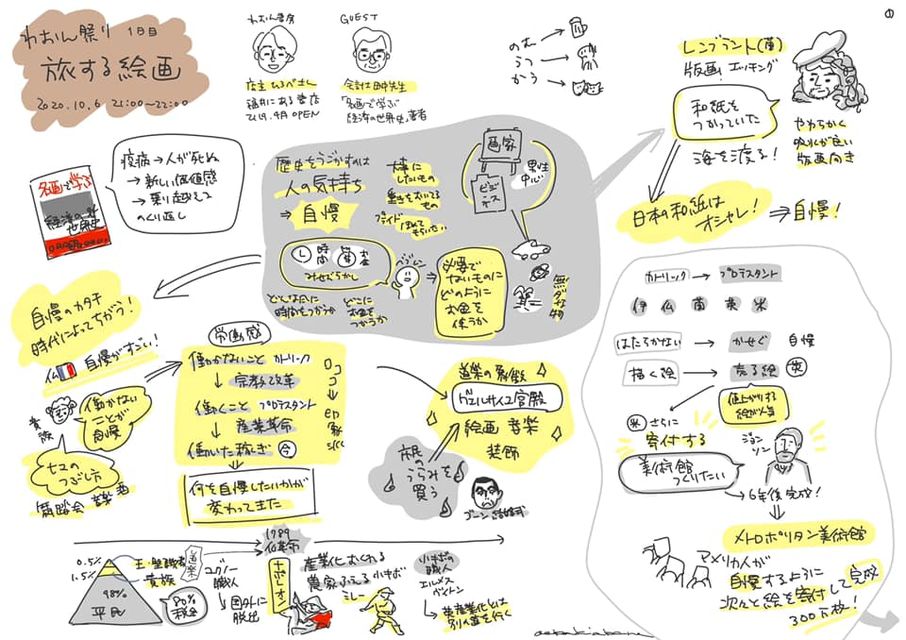 ①
わおん祭り 1日目
旅する絵画
2020.10.6 21:00〜22:00
わおん書房
店主
福井にある書店
2019.4月 OPEN
GUEST
会計士 田中先生
「名画で学ぶ
経済の世界史」著者
のむ
うつ
かう
レンブラント(蘭)
版画 エッチング
和紙を
つかっていた
海を渡る!
やわらかく
吸収が良い
版画向き
日本の和紙は
オシャレ!
⇒自慢!
名画で学ぶ
経済の
世界史
疫病→人が死ぬ
→新しい価値感
→乗り越えて
のくり返し
歴史をうごかすのは
人の気持ち
⇒自慢
大事に
したいもの
重きをおいてる
もの
プライド
ほめて
もらいたい
画家
ビジネス
男性
中心
みせびらかし
どんなことに
時間をつかうか
どこに
お金を
つかうか
必要で
ないものに
どのように
お金を
使うか
無ダな物
自慢のカタチ
時代によってちがう!
仏 自慢がすごい!
貴族
働かない
ことが
自慢
ヒマの
つぶし方
音楽
労働感
働かないこと カトリック
↓宗教改革
働くこと プロテスタント
↓産業革命
働いた稼ぎ 今
ロココ
印象派
何を自慢したいかが
変わってきた
道楽の象徴
ヴェルサイユ宮殿
絵画 音楽
装飾
市民の
うらみを
買う
ゴーン
カトリック → プロテスタント
伊 仏 蘭 英 米
はたらかない → かせぐ 自慢
描く絵 → 売る絵 英
値上がりする
絵が人気
米 さらに
寄付する
美術館
つくりたい
ジョンソン
→6年後完成!
メトロポリタン美術館
アメリカ人が
自慢するように
次々と絵を寄付して完成
300万枚!
1789
仏革命
0.5%
1.5%
98%
平民
王・聖職者
貴族
道楽
ユグノー
職人
↓
国外に
脱出
ナポレオン
産業化おくれる
農家ふえる 小さな
ミレー
小さな
職人
エルメス
ヴィトン
↓
英産業化とは
別の道を行く